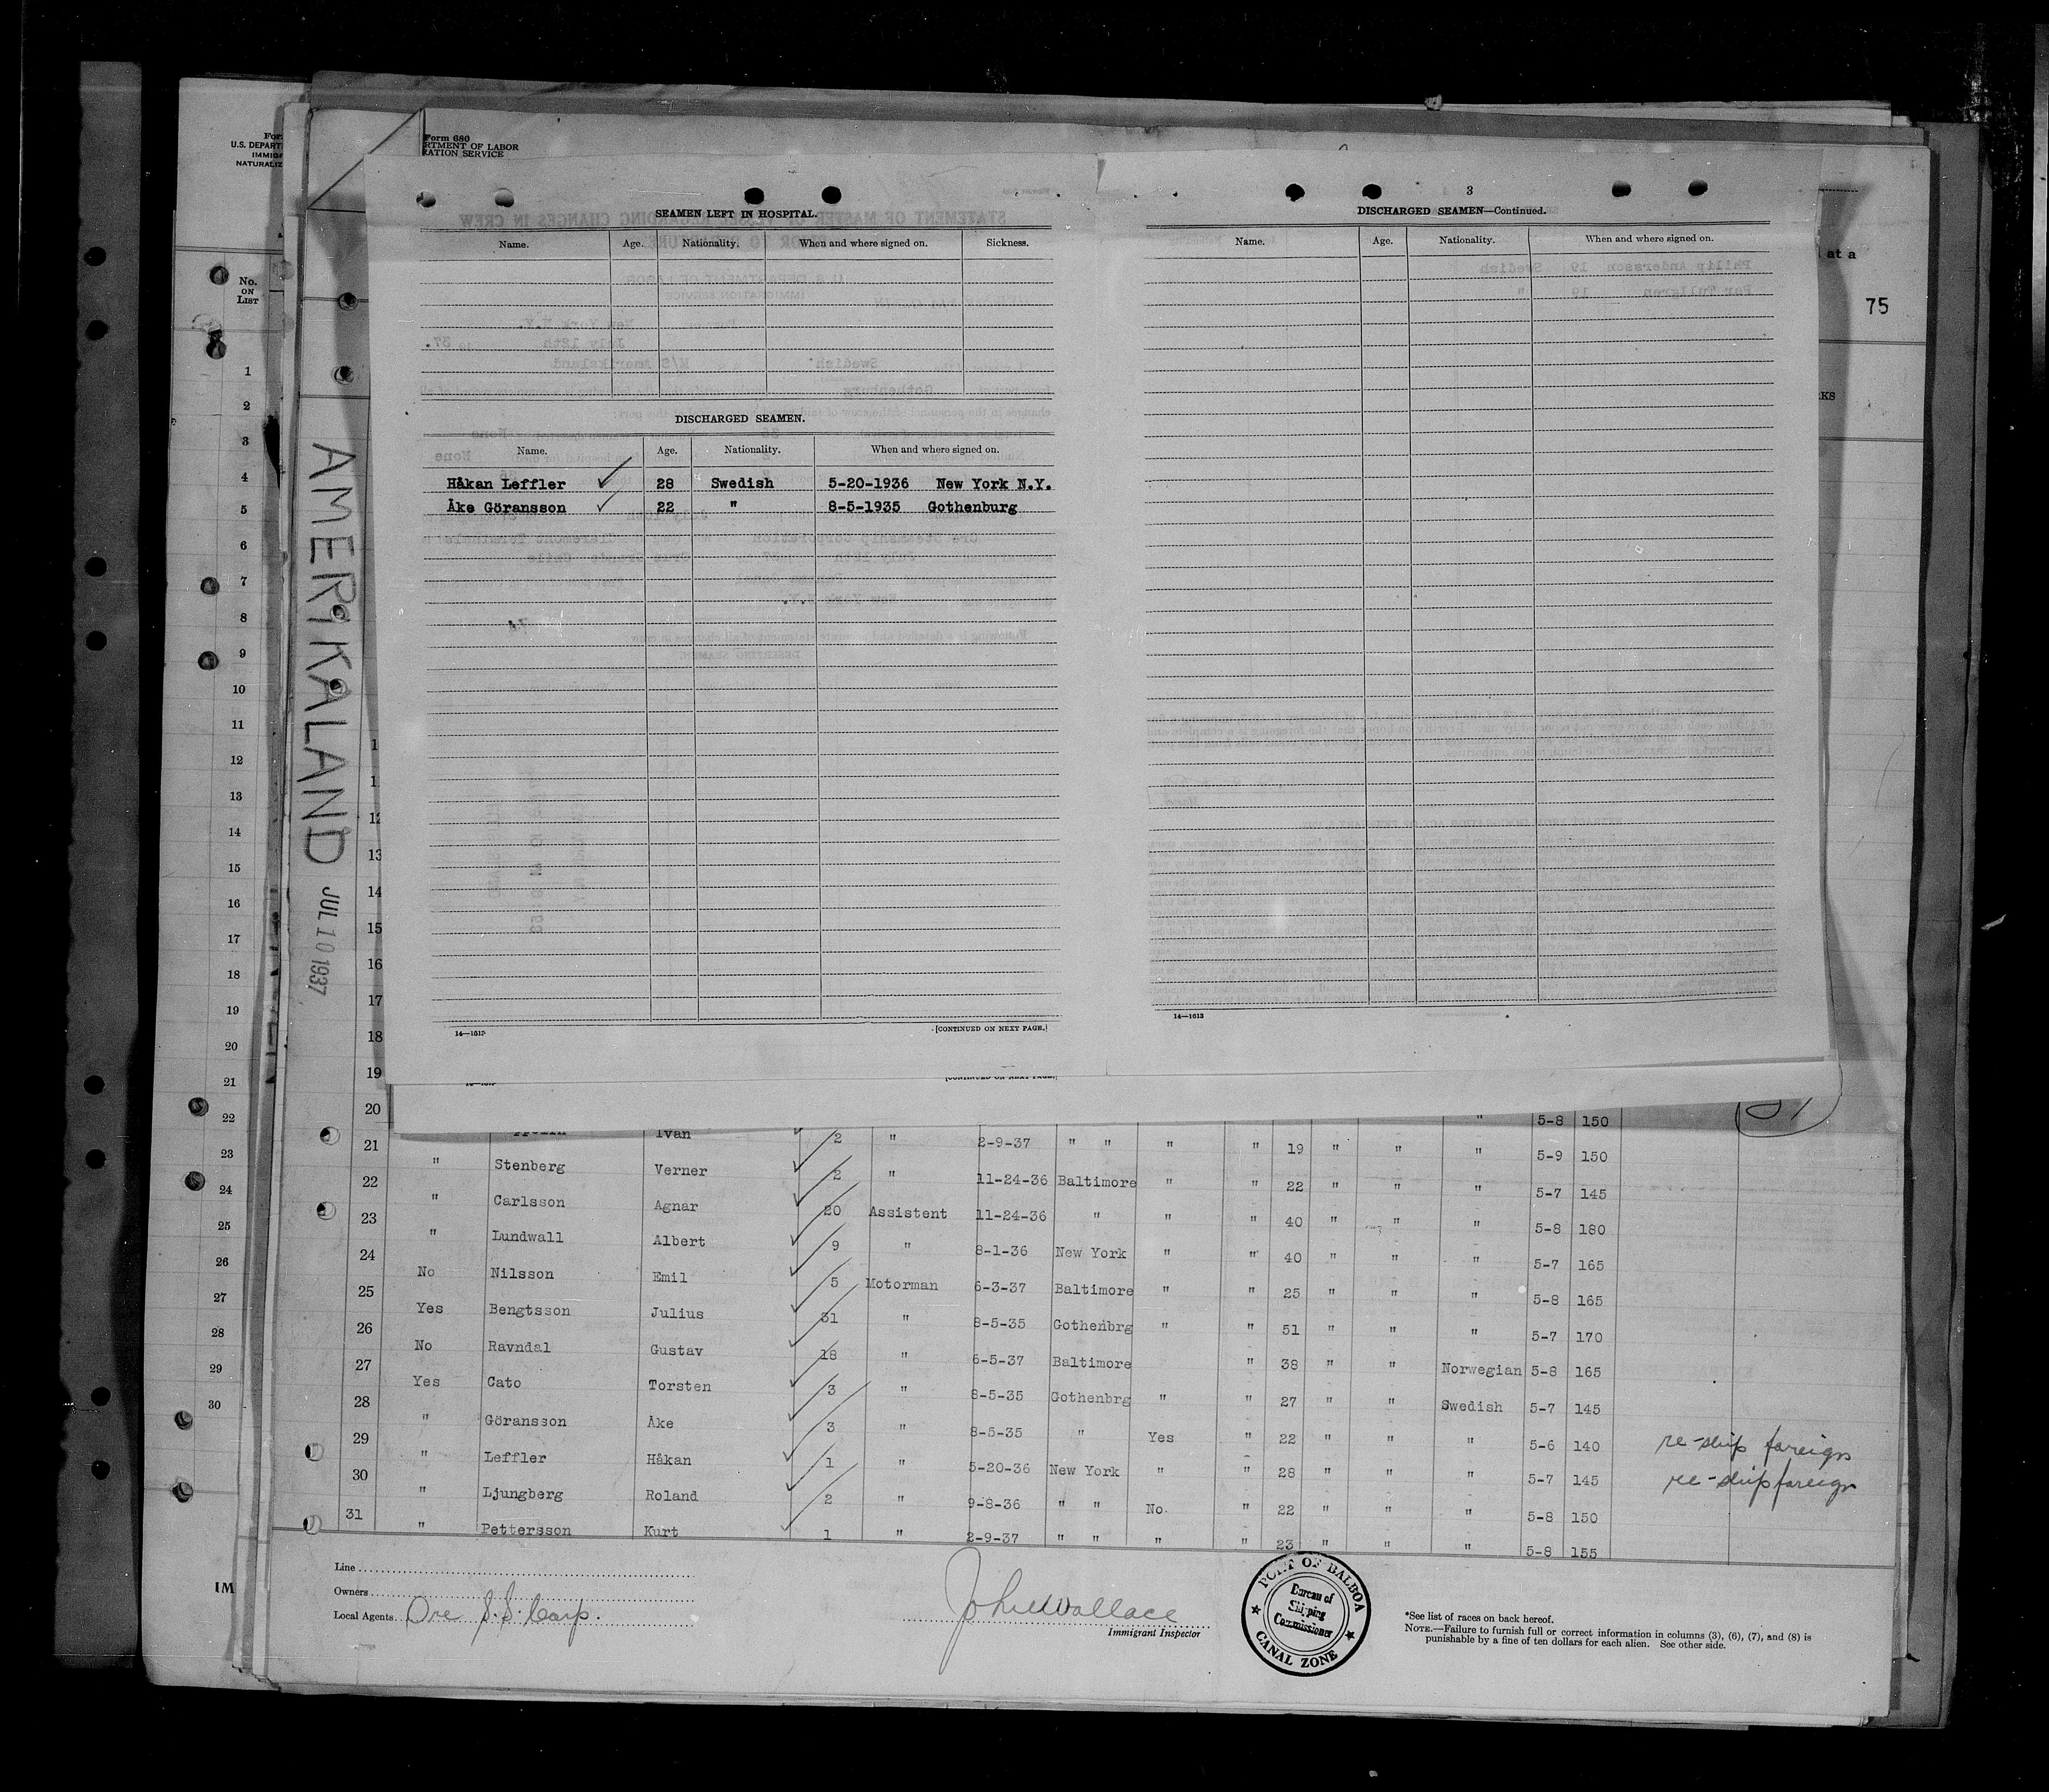 Form 680
U.S. DEPART
RTMENT OF LABOR
IMMIG
RATION SERVICE
NATURALIZ
at a
75
KS
No.
ON
LIST
1
2
3
4
5
6
7
8
9
10
11
12
13
14
15
16
17
18
19
20
21
22
23
24
25
26
27
28
29
30
IM
AMERIKALAND
JUL 10 1937
SEAMEN LEFT IN HOSPITAL.
Name. Age. Nationality. When and where signed on. Sickness.
DISCHARGED SEAMEN.
Name. Age. Nationality. When and where signed on.
Håkan Leffler 28 Swedish 5-20-1936 New York N.Y.
Åke Göransson 22 " 8-5-1935 Gothenburg
14—1613
[CONTINUED ON NEXT PAGE.]
3
DISCHARGED SEAMEN—Continued.
Name. Age. Nationality. When and where signed on.
14—1613
13
14
15
16
17
18
19
20 " 5-8 150
21 Ivan 2 " 2-9-37 " " " " 19 " " " 5-9 150
22 " Stenberg Verner 2 " 11-24-36 Baltimore " " 22 " " " 5-7 145
23 " Carlsson Agnar 20 Assistent 11-24-36 " " " 40 " " " 5-8 180
24 " Lundwall Albert 9 " 8-1-36 New York " " 40 " " " 5-7 165
25 No Nilsson Emil 5 Motorman 6-3-37 Baltimore " " 25 " " " 5-8 165
26 Yes Bengtsson Julius 31 " 8-5-35 Gothenbrg " " 51 " " " 5-7 170
27 No Ravndal Gustav 18 " 6-5-37 Baltimore " 38 " " Norwegian 5-8 165
28 Yes Cato Torsten 3 " 8-5-35 Gothenbrg " " 27 " " Swedish 5-7 145
29 " Göransson Åke 3 " 8-5-35 " Yes " 22 " " " 5-6 140 re-ship foreign
30 " Leffler Håkan 1 " 5-20-36 New York " " 28 " " " 5-7 145 re-ship foreign
31 " Ljungberg Roland 2 " 9-8-36 " " No " 22 " " " 5-8 150
" Pettersson Kurt 1 " 2-9-37 " " " " 23 " " " 5-8 155
Line
Owners
Local Agents Ore S.S. Corp.
John Wallace
Immigrant Inspector
PORT OF BALBOA
Bureau of
Shipping
Commissioner
CANAL ZONE
*See list of races on back hereof.
NOTE.—Failure to furnish full or correct information in columns (3), (6), (7), and (8) is
punishable by a fine of ten dollars for each alien. See other side.